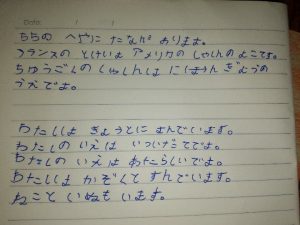 ちちの へやに たなが あります。
フランスの とけいは アメリカの しゃしんの よこです。
ちゅうごくの しゃしんは にほんの
うえです。
わたしは きょうとに すんでいます。
わたしの いえは いっけんだてです。
わたしの いえは あたらしいです。
わたしは かぞくと すんでいます。
ねこと いぬも います。